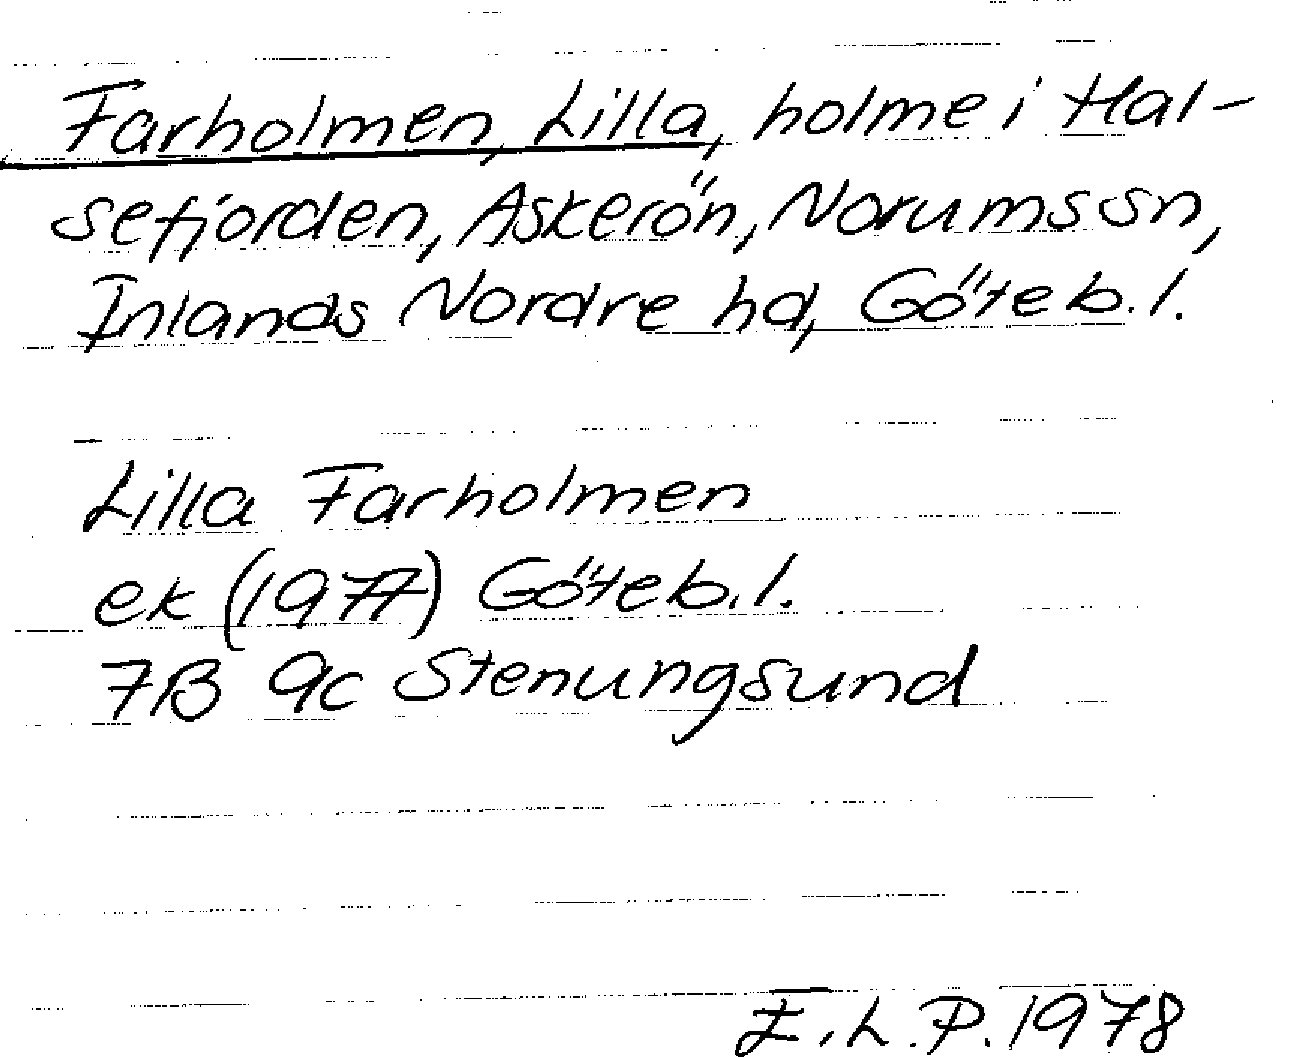 Farholmen, Lilla, holme i Hal-
sefjorden, Askerön, Norums sn,
Inlands Nordre hd, Göteb. l.
Lilla Farholmen
ek (1977) Göteb. l.
7B 9c Stenungsund
E. L. P. 1978